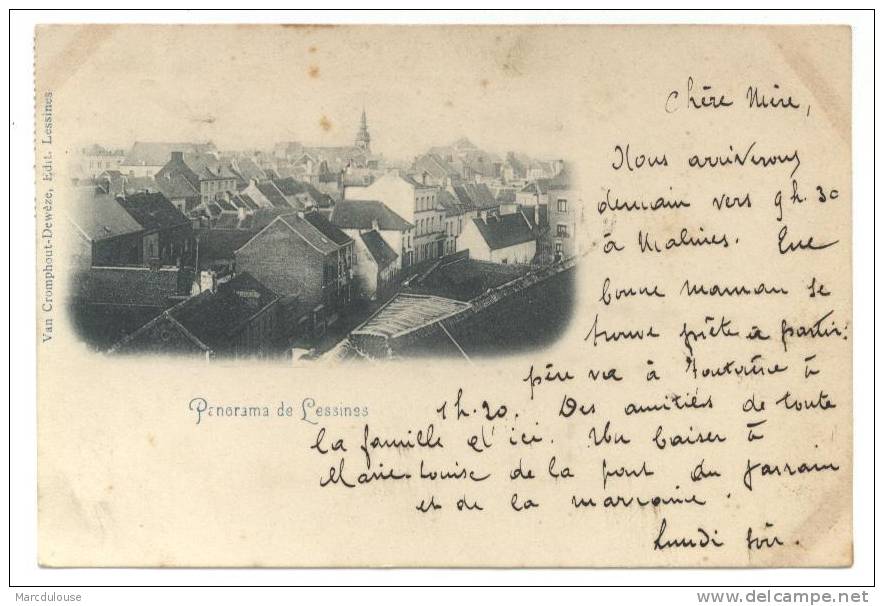 Van Cromphout-Dewèze, Edit. Lessines
Chère Mère,
Nous arriverons
demain vers 9h.30
à Malines. Que
bonne maman se
trouve prête à partir.
père va à
1h.20. Des amitiés de toute
la famille d'ici. Un baiser à
Marie-Louise de la part du parrain
et de la marraine.
Lundi soir.
Panorama de Lessines
Marcdulouse
delcampe.net